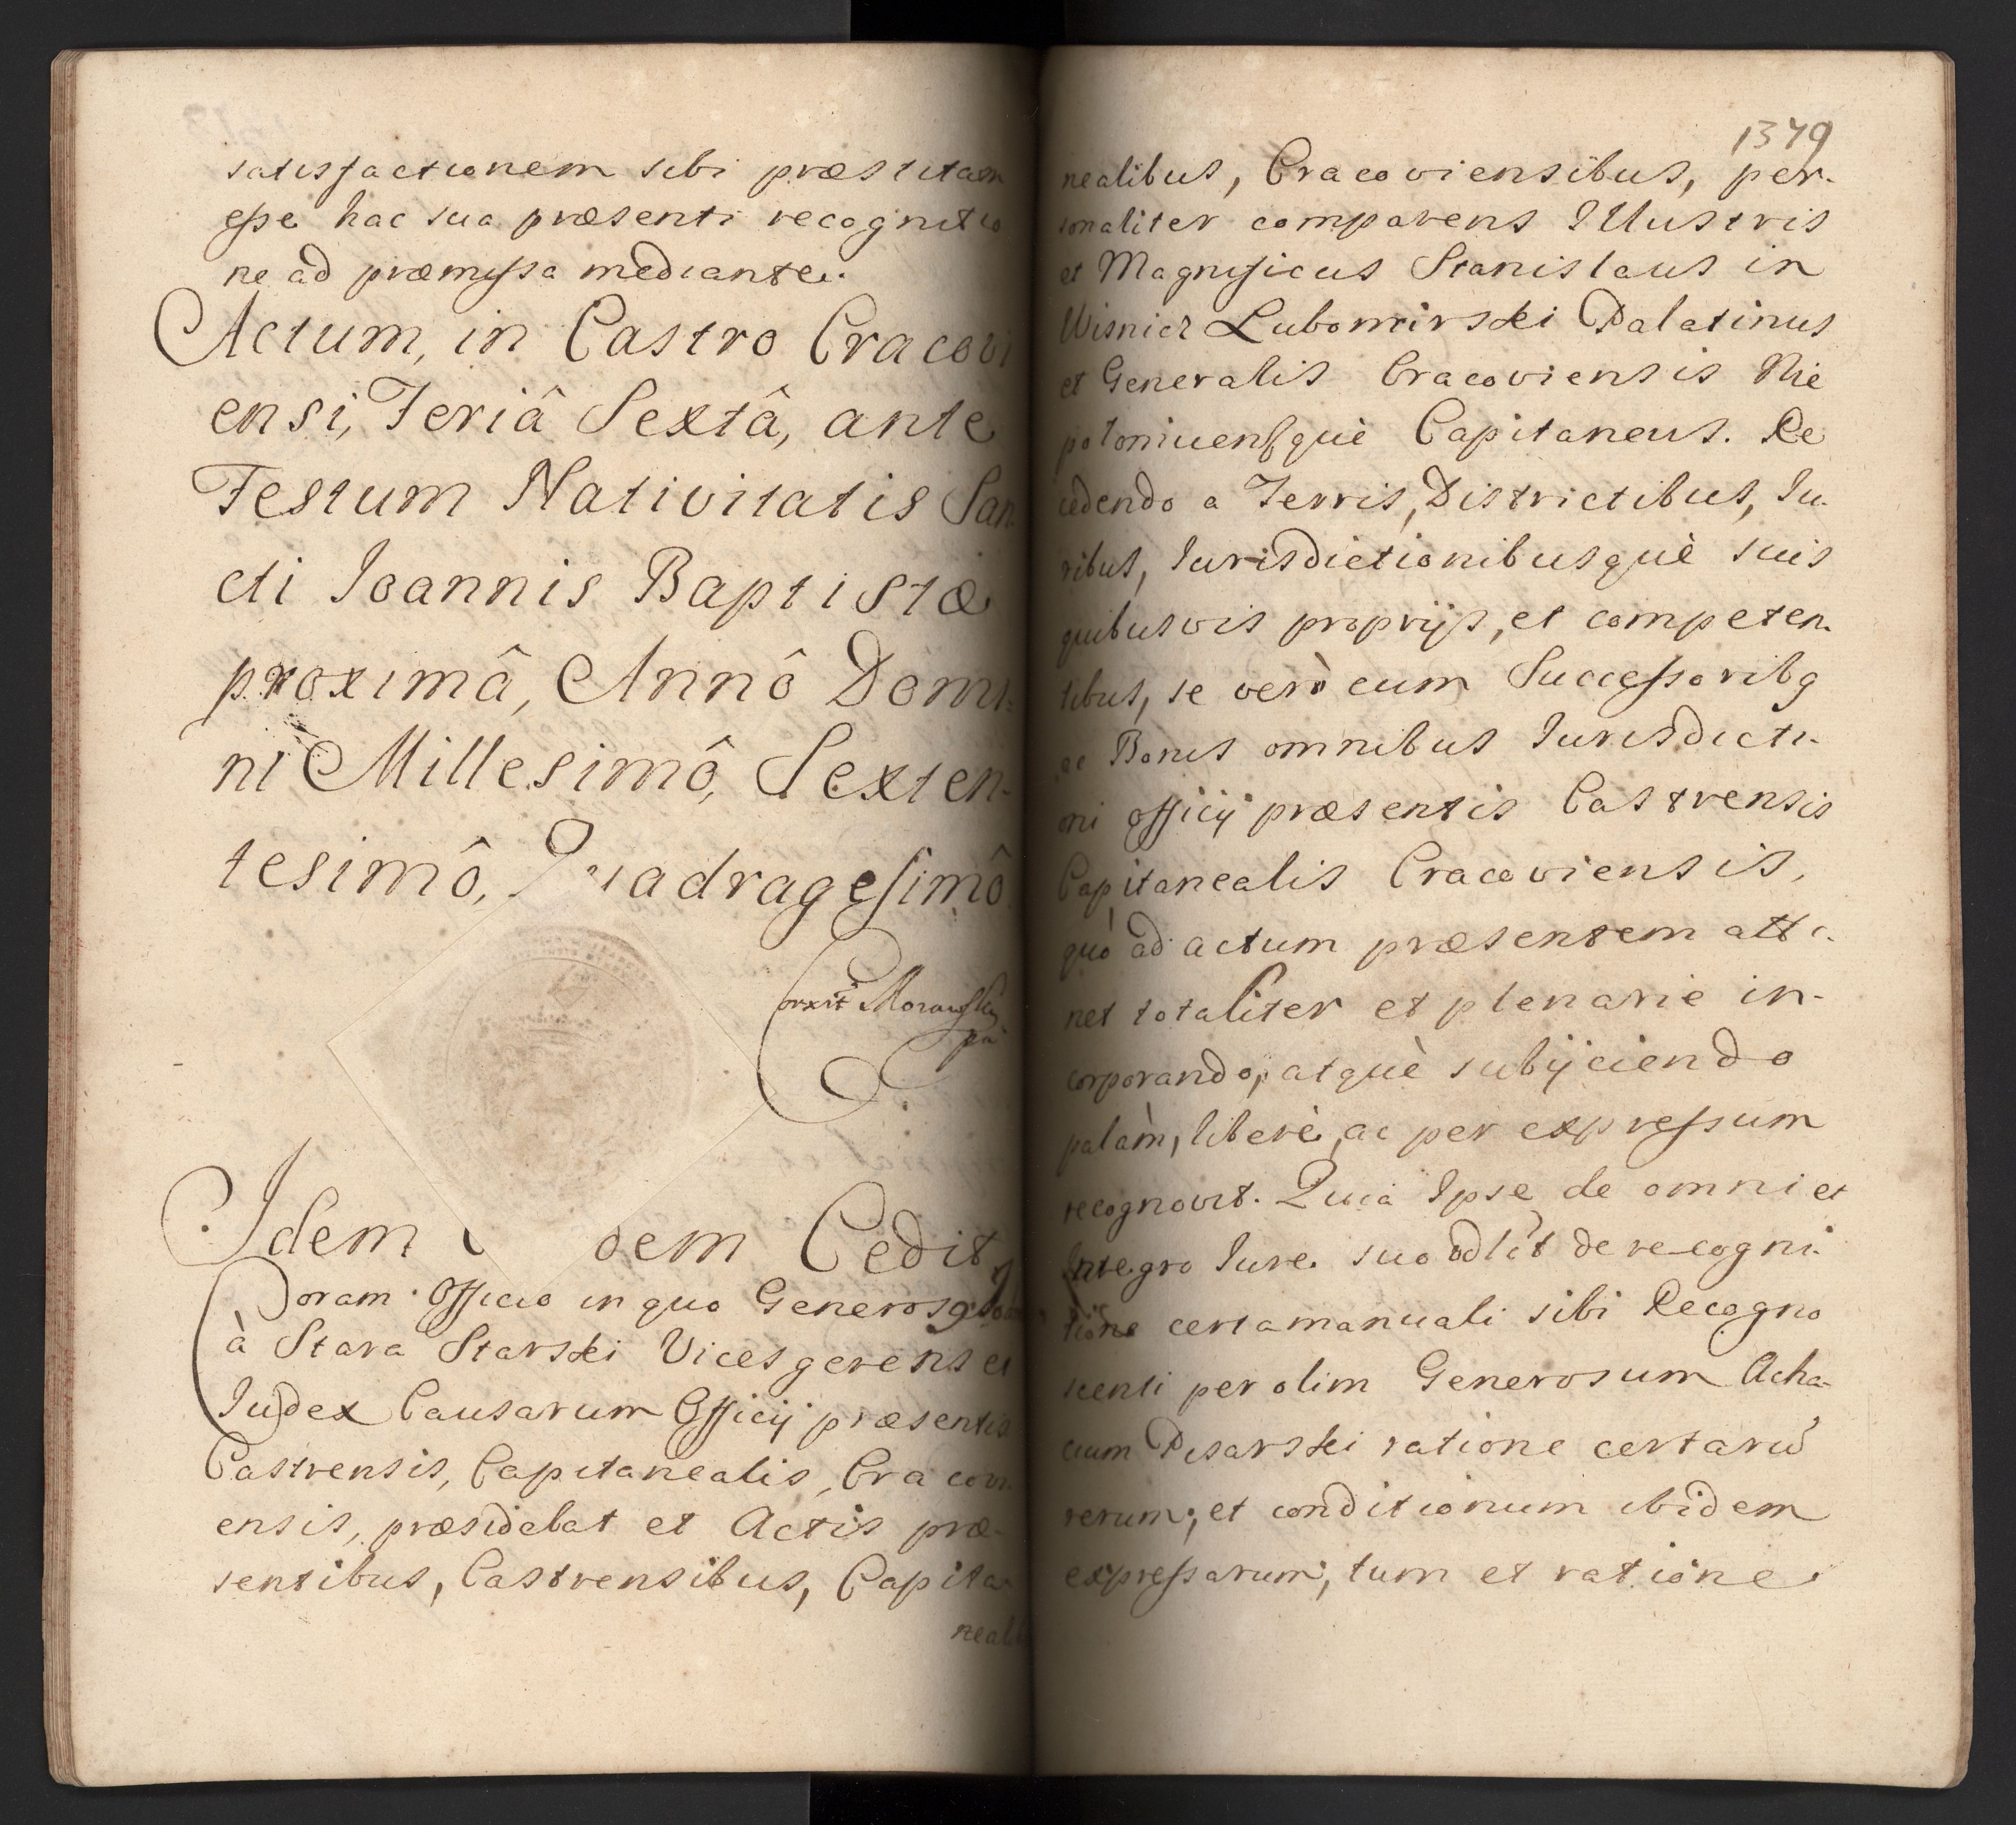 satisfactionem sibi præstitam
esse hac sua præsenti recognitio
ne ad præmissa mediante.
Actum, in Castro Cracovi
ensi, Feriâ Sextâ, ante
Festum Nativitatis San
cti Ioannis Baptistæ
proximâ, Annô Domi=
ni Millesimô, Sexten-
tesimô, Quadragesimô
Corexit Morawski
pa
Idem dem Cedit
Coram Officio in quo Generosq
à Stara Starski Vicesgerens et
Iudex Causarum Officij præsentis
Castrensis, Capitanealis, Cracovi
ensis, præsidebat et Actis præ-
sentibus, Castrensibus, Capita
neali
1379
nealibus, Cracoviensibus, per-
sonaliter comparens Illustris
et Magnificus Stanislaus in
Wisnicz Lubomirski Palatinus
et Generalis Cracoviensis Nie
polomicensquè Capitaneus. Re
cedendo a Terris, Districtibus, Iu-
ribus, Iurisdictionibusquè suis
quibusvis proprijs, et competen-
tibus, se verò cum Successoribq
ac Bonis omnibus Iurisdicti-
oni Officij præsentis Castrensis
Capitanealis Cracoviensis,
quò ad actum præsentem atti-
net totaliter et plenarie in-
corporando, atquè subijciendo
palàm, liberè, ac per expressum
recognovit. Quia Ipse de omni et
Integro Iure suo odlit de recogni-
tione certa manuali sibi Recogno
scenti per olim Generosum Acha-
cium Pisarski ratione certarũ
rerum, et conditionum ibidem
expressarum, tum et ratione